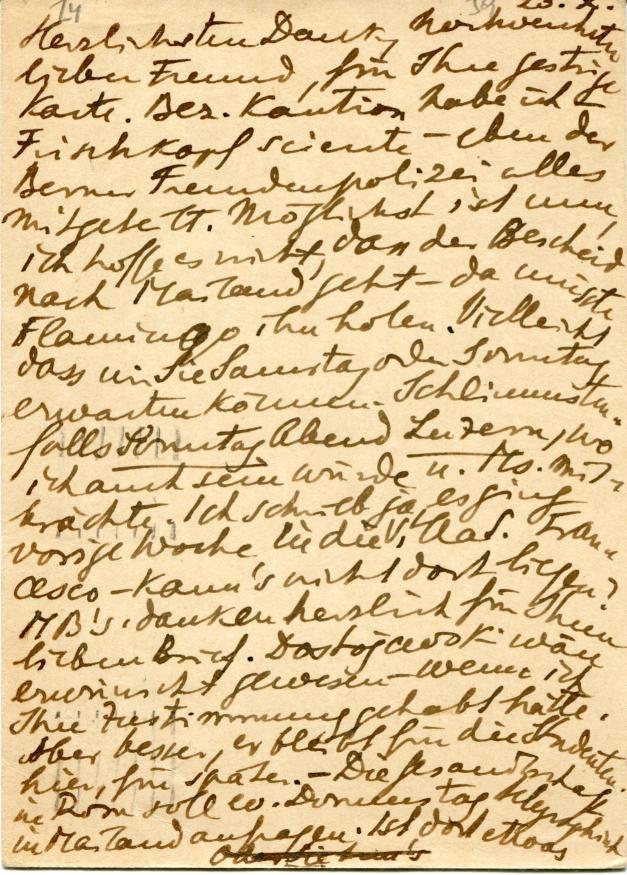 14 39 23. X.
Herzlichsten Dank, hochverehrter
lieber Freund, für Ihre gestrige
Karte. Bez. Kaution habe ich –
Frischkopf sciente – eben der
Berner Fremdenpolizei alles
mitgeteilt. Möglichst ist nun,
ich hoffe es nicht, dass der Bescheid
nach Mailand geht – da müsste
Flamingo ihn holen. Vielleicht
dass wir Sie Samstag oder Sonntag
erwarten können – Schlimmsten-
falls Sonntag Abend Luzern, wo
ich auch sein würde u. Ms. mit-
brächte. Ich schrieb ja, es ging
vorige Woche in die Fran-
cesco – kann's nicht dort liegen?
MB's danken herzlich für Ihren
lieben Brief. Dostojewski wäre
erwünscht gewesen – wenn ich
Ihre Zustimmung gehabt hätte.
Aber besser, er bleibt für die Studenten
hier, für später. – Die Gesandtschaft
in Rom soll Donnerstag telephonisch
in Mailand anfragen. Ist dort etwas